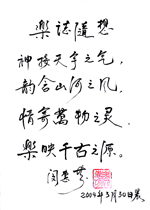 樂誌隨想
神接天宇之气，
韵含山河之风，
情寄萬物之灵，
樂映千古之源。
2004年3月30日晨